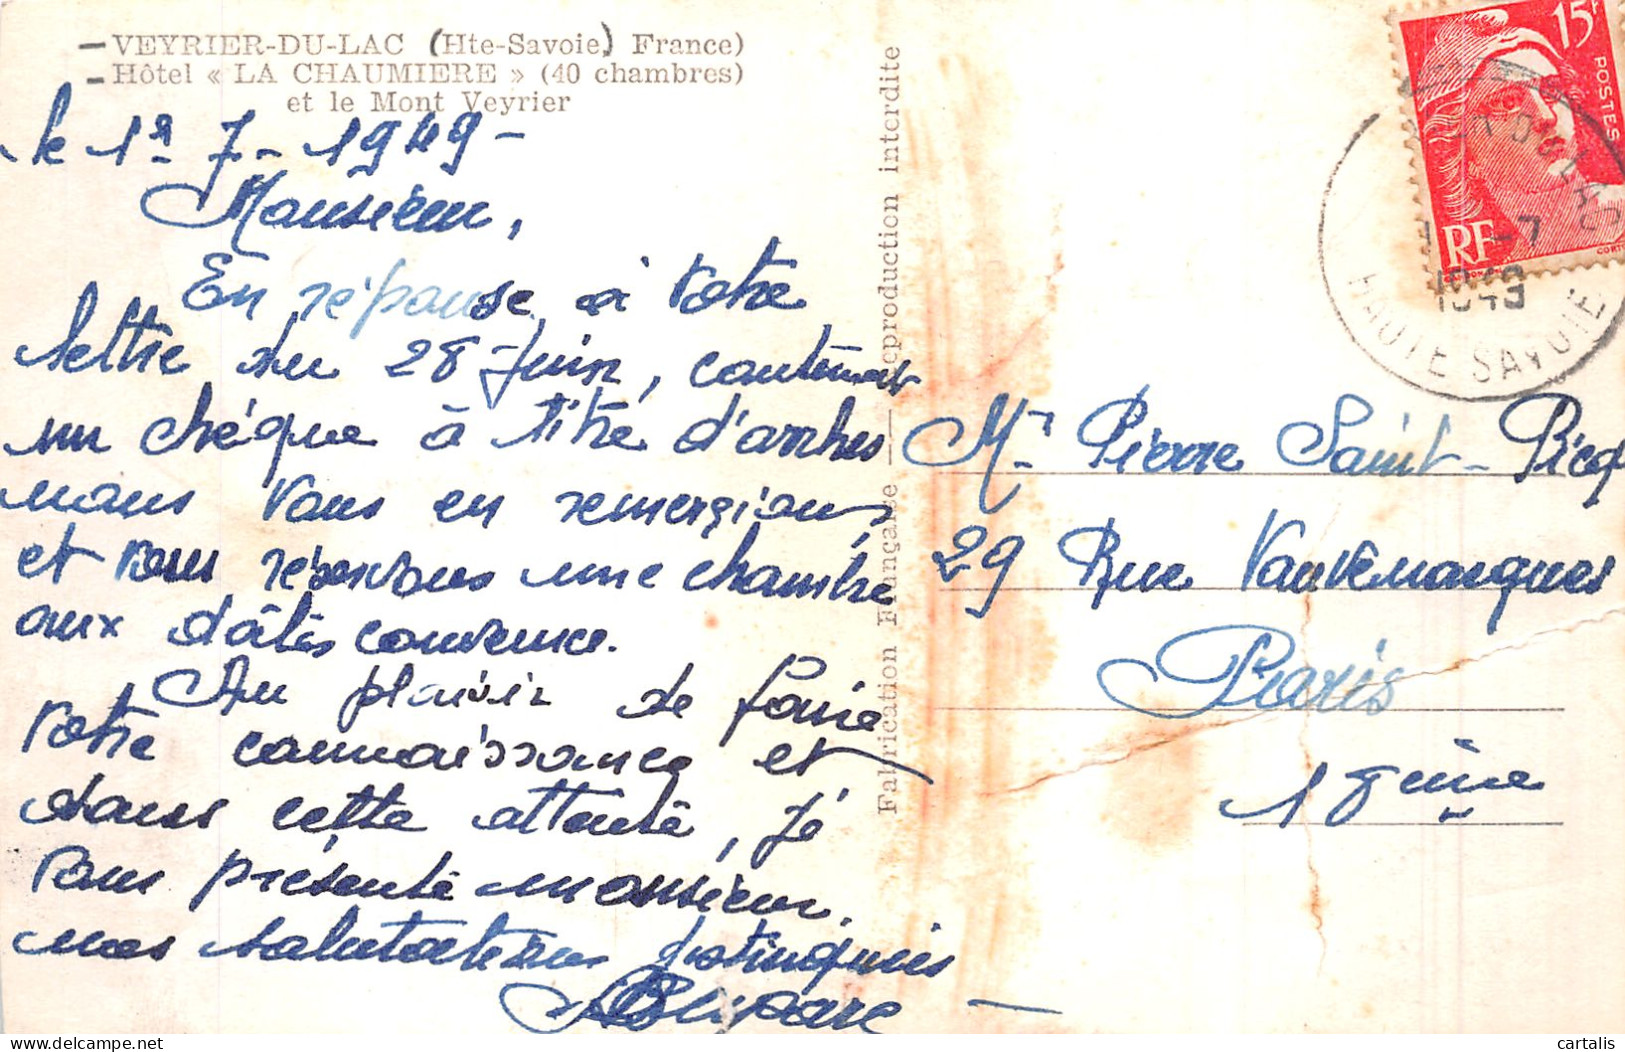 VEYRIER-DU-LAC (Hte-Savoie) France)
Hôtel « LA CHAUMIERE » (40 chambres)
et le Mont Veyrier
le 1er 7 - 1949 -
Monsieur,
En réponse à votre
lettre du 28 Juin, contenant
un chéque à titre d'arrhes
nous vous en remercions,
et vous réservons une chambre
aux dâtes convenue.
Au plaisir de faire
votre connaissance et
dans cette attente, je
vous présente monsieur.
mes salutations distinguées
Fabrication Française — Reproduction interdite
15F
POSTES
RF
DU LAC
-7
1949
HAUTE SAVOIE
Mr Pierre Saint-Picq
29 Rue Vauvenargues
Paris
18ème
cartalis
delcampe.net